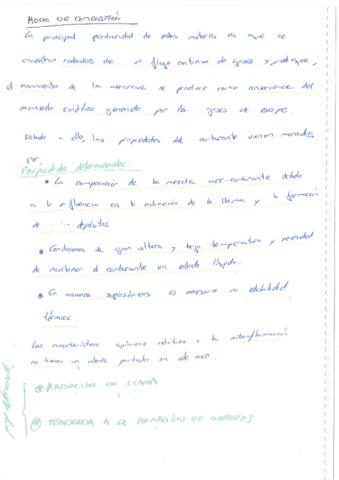 MODO DE COMBUSTIÓN
La principal peculiaridad de estos motores es que se
encuentran rodeados de un flujo continuo de gases y, por que,
el movimiento de la aeronave se produce como consecuencia del
momento cinético generado por los gases de escape.
Debido a ello, las propiedades del carburante vienen marcadas
por
Propiedades determinadas:
• La composición de la mezcla aire-carburante debido
a la influencia en la radiación de la llama y la formación
de depósitos
• Condiciones de gran altura y baja temperatura y necesidad
de mantener el carburante en estado líquido.
• En aviones supersónicos es necesaria una estabilidad
térmica.
Las características químicas relativas a la autoinflamación
no tienen un interés particular en este caso.
RADIACIÓN DE LLAMA
TENDENCIA A LA FORMACIÓN DE DEPÓSITOS